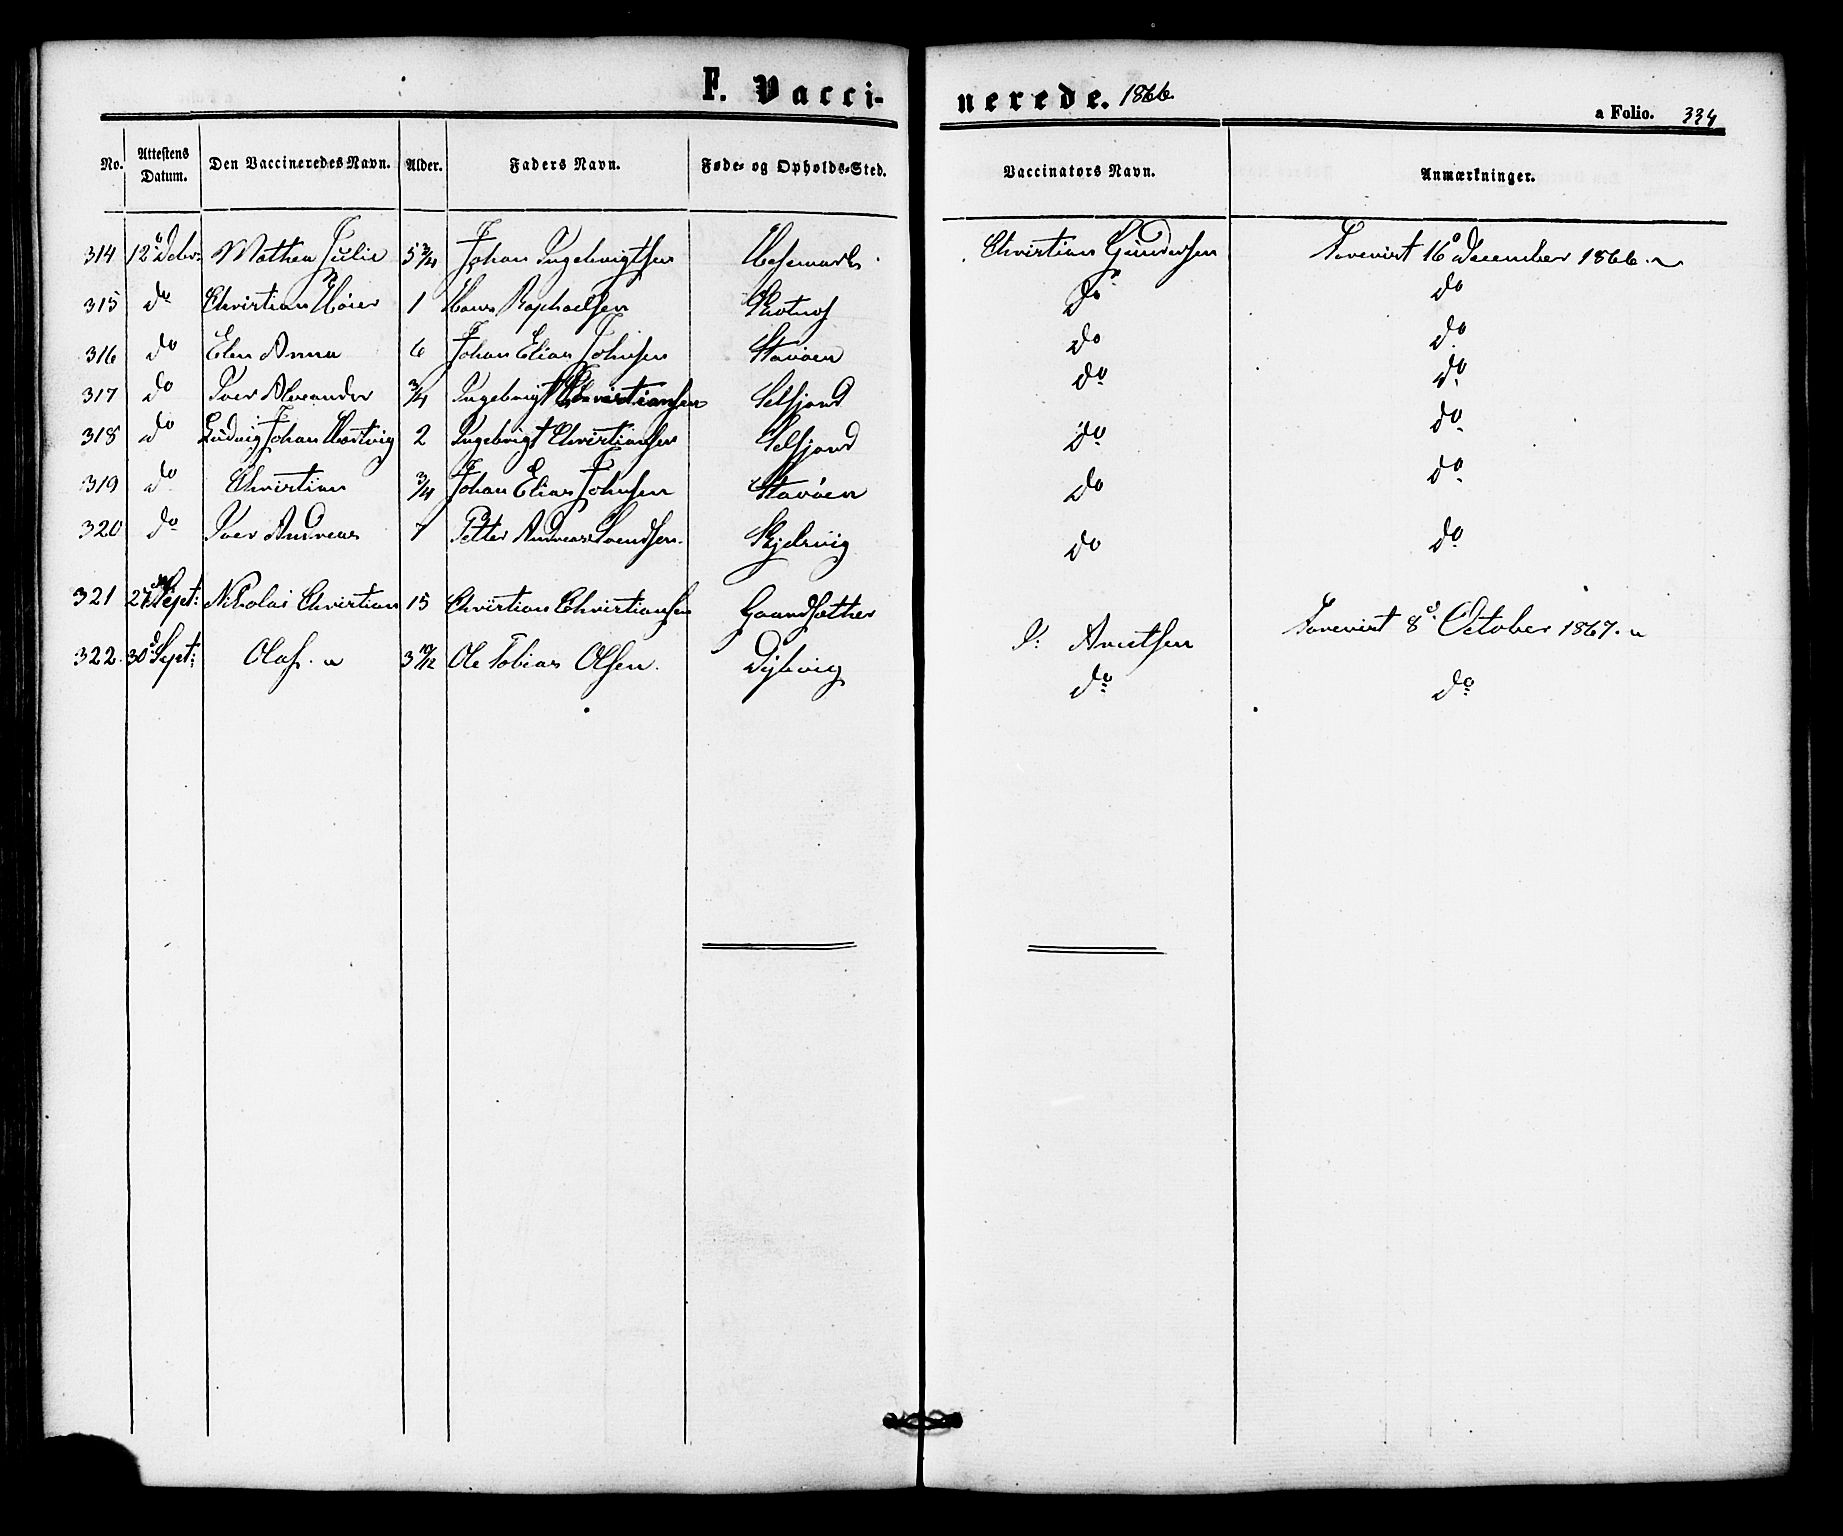 F. Vaccinerede. 1866.
a Folio. 334
No. | Attestens Datum. | Den Vaccineredes Navn. | Alder. | Faders Navn. | Føde- og Opholds-Sted. | Vaccinators Navn. | Anmærkninger.
314 | 12 Debr: | Mathea Julie | 5 3/4 | Johan Ingebrigtsen | | Christian Gundersen | 16 December 1866.
315 | do | Christian | 1 | Hans Raphaelsen | | do | do
316 | do | Elen Anna | 6 | Johan Elias Johnsen | Stavøen | do | do
317 | do | Iver Alexander | 3/4 | Ingebrigt Christiansen | Selfjord | do | do
318 | do | Ludvig Johan Hartvig | 2 | Ingebrigt Christiansen | Selfjord | do | do
319 | do | Christian | 3/4 | Johan Elias Johnsen | Stavøen | do | do
320 | do | Iver Andreas | 7 | Petter Andreas Svendsen. | Skjelvig | do | do
321 | 27 Sept: | Nikolai Christian | 15 | Christian Christiansen | Gaardsæther | Arentsen | 8 October 1867.
322. | 30 Sept: | Olaf. | 3 10/12 | Ole Tobias Olsen. | Dybvig | do | do